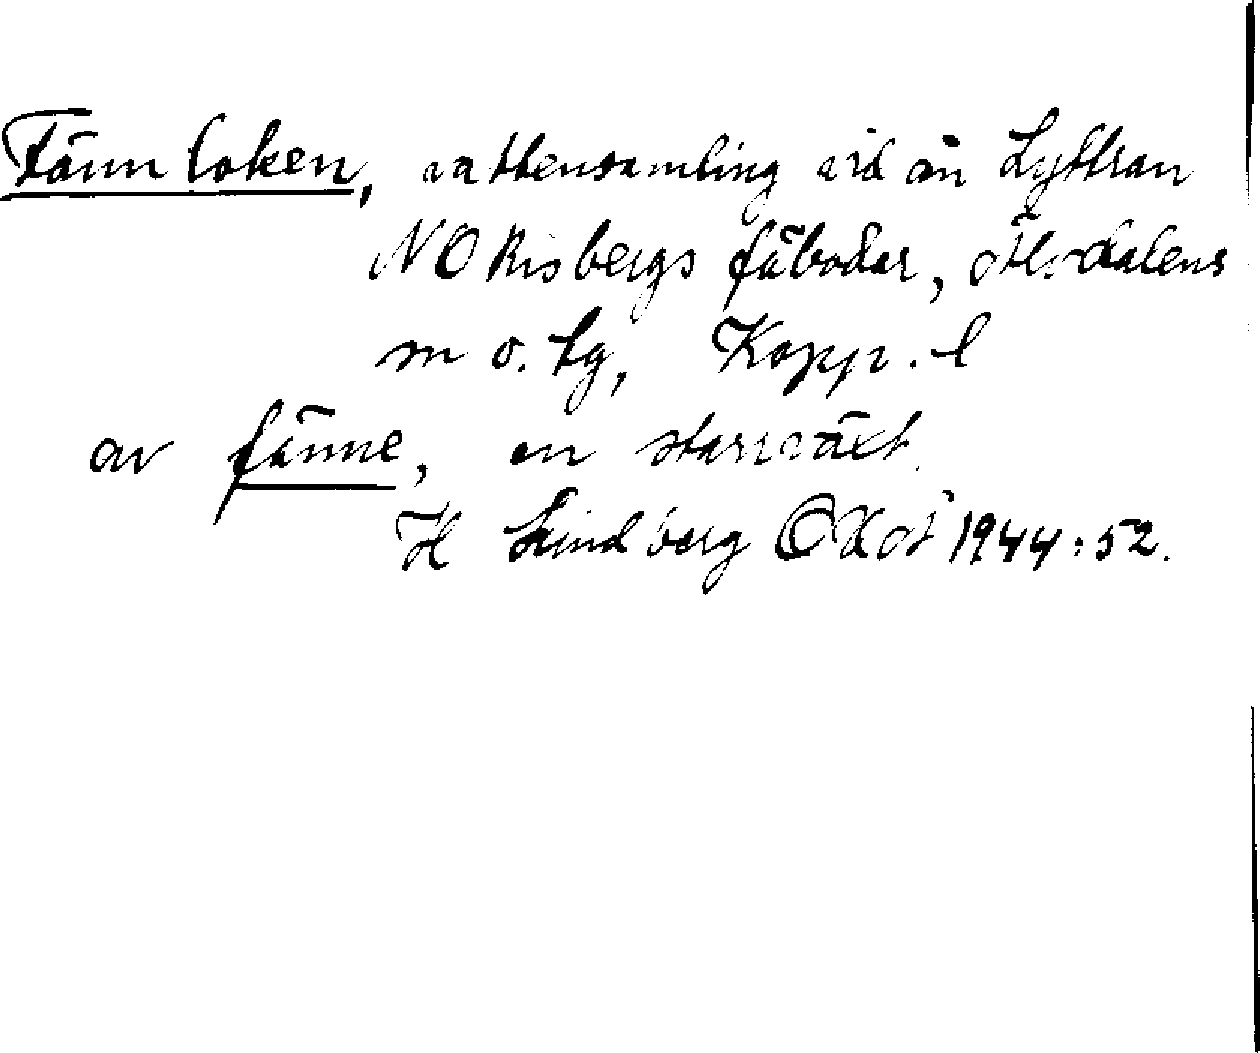 Fänn loken, vattensamling vid ån Lyftran
NO Risbergs fäbodar, Älvdalens
sn o. tg, Kopp. l
av fänne, en starrväxt.
H Lindberg 1944:52.